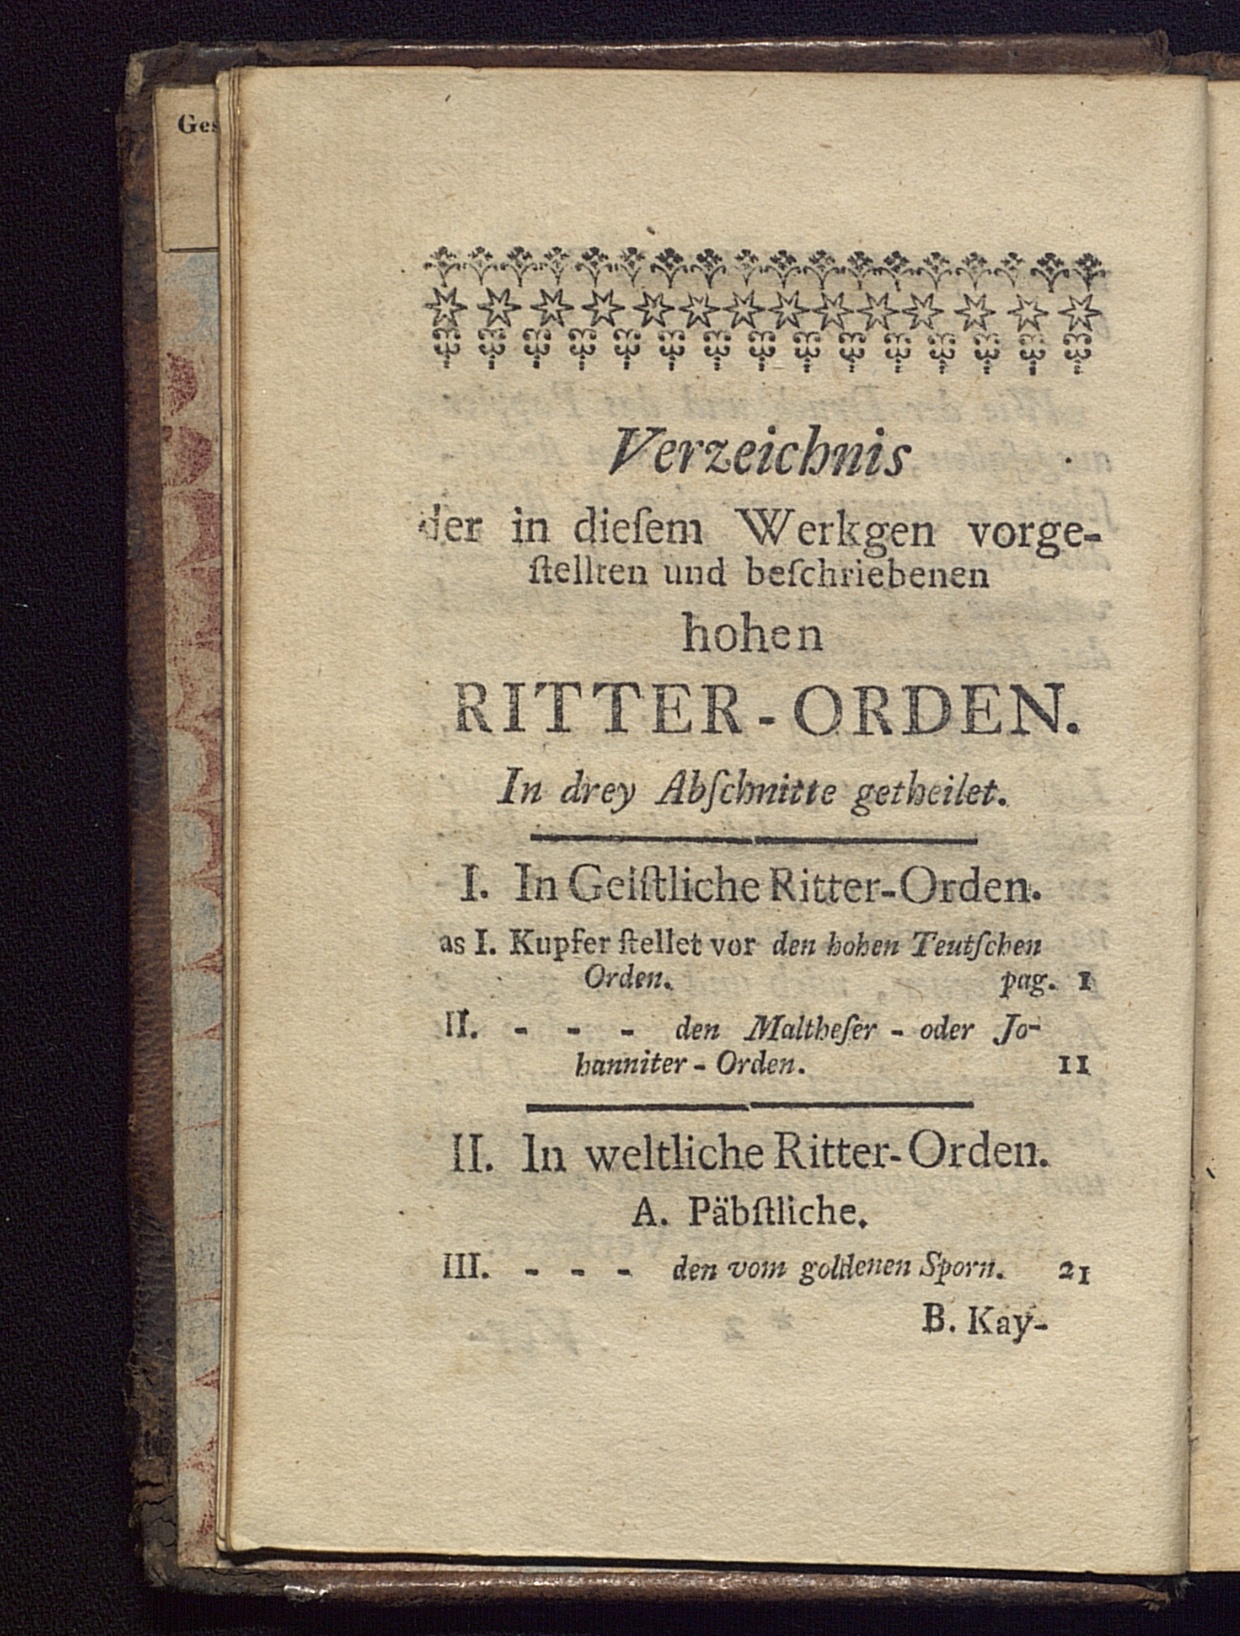 Verzeichnis
der in dieſem Werkgen vorge-
ſtellten und beſchriebenen
hohen
RITTER-ORDEN.
In drey Abſchnitte getheilet.
I. In Geiſtliche Ritter-Orden.
as I. Kupfer ſtellet vor den hohen Teutſchen
Orden. pag. 1
II. - - - den Maltheſer - oder Jo-
hanniter - Orden. 11
II. In weltliche Ritter-Orden.
A. Päbſtliche.
III. - - - den vom goldenen Sporn. 21
B. Kay-